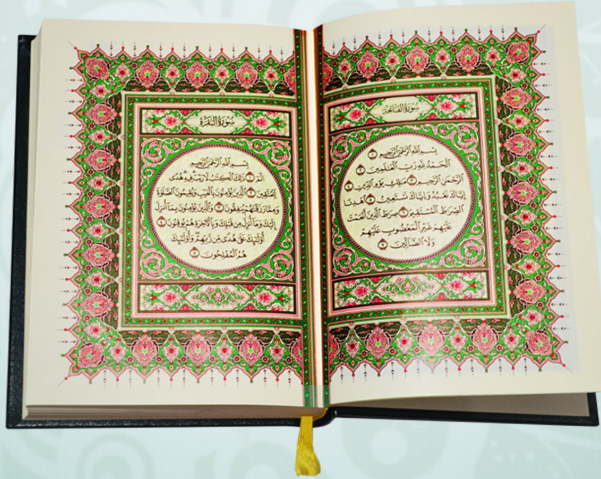 سُورَةُ الفَاتِحَةِ
بِسْمِ اللَّهِ الرَّحْمَٰنِ الرَّحِيمِ ١
الْحَمْدُ لِلَّهِ رَبِّ الْعَٰلَمِينَ ٢
الرَّحْمَٰنِ الرَّحِيمِ ٣ مَٰلِكِ يَوْمِ الدِّينِ ٤
إِيَّاكَ نَعْبُدُ وَإِيَّاكَ نَسْتَعِينُ ٥ اهْدِنَا
الصِّرَٰطَ الْمُسْتَقِيمَ ٦ صِرَٰطَ الَّذِينَ أَنْعَمْتَ
عَلَيْهِمْ غَيْرِ الْمَغْضُوبِ عَلَيْهِمْ
وَلَا الضَّالِّينَ ٧
سُورَةُ البَقَرَةِ
بِسْمِ اللَّهِ الرَّحْمَٰنِ الرَّحِيمِ
الم ١ ذَٰلِكَ الْكِتَٰبُ لَا رَيْبَ فِيهِ هُدًى
لِلْمُتَّقِينَ ٢ الَّذِينَ يُؤْمِنُونَ بِالْغَيْبِ وَيُقِيمُونَ الصَّلَوٰةَ
وَمِمَّا رَزَقْنَٰهُمْ يُنْفِقُونَ ٣ وَالَّذِينَ يُؤْمِنُونَ بِمَا أُنْزِلَ
إِلَيْكَ وَمَا أُنْزِلَ مِنْ قَبْلِكَ وَبِالْآخِرَةِ هُمْ يُوقِنُونَ ٤
أُولَٰئِكَ عَلَىٰ هُدًى مِنْ رَبِّهِمْ وَأُولَٰئِكَ
هُمُ الْمُفْلِحُونَ ٥